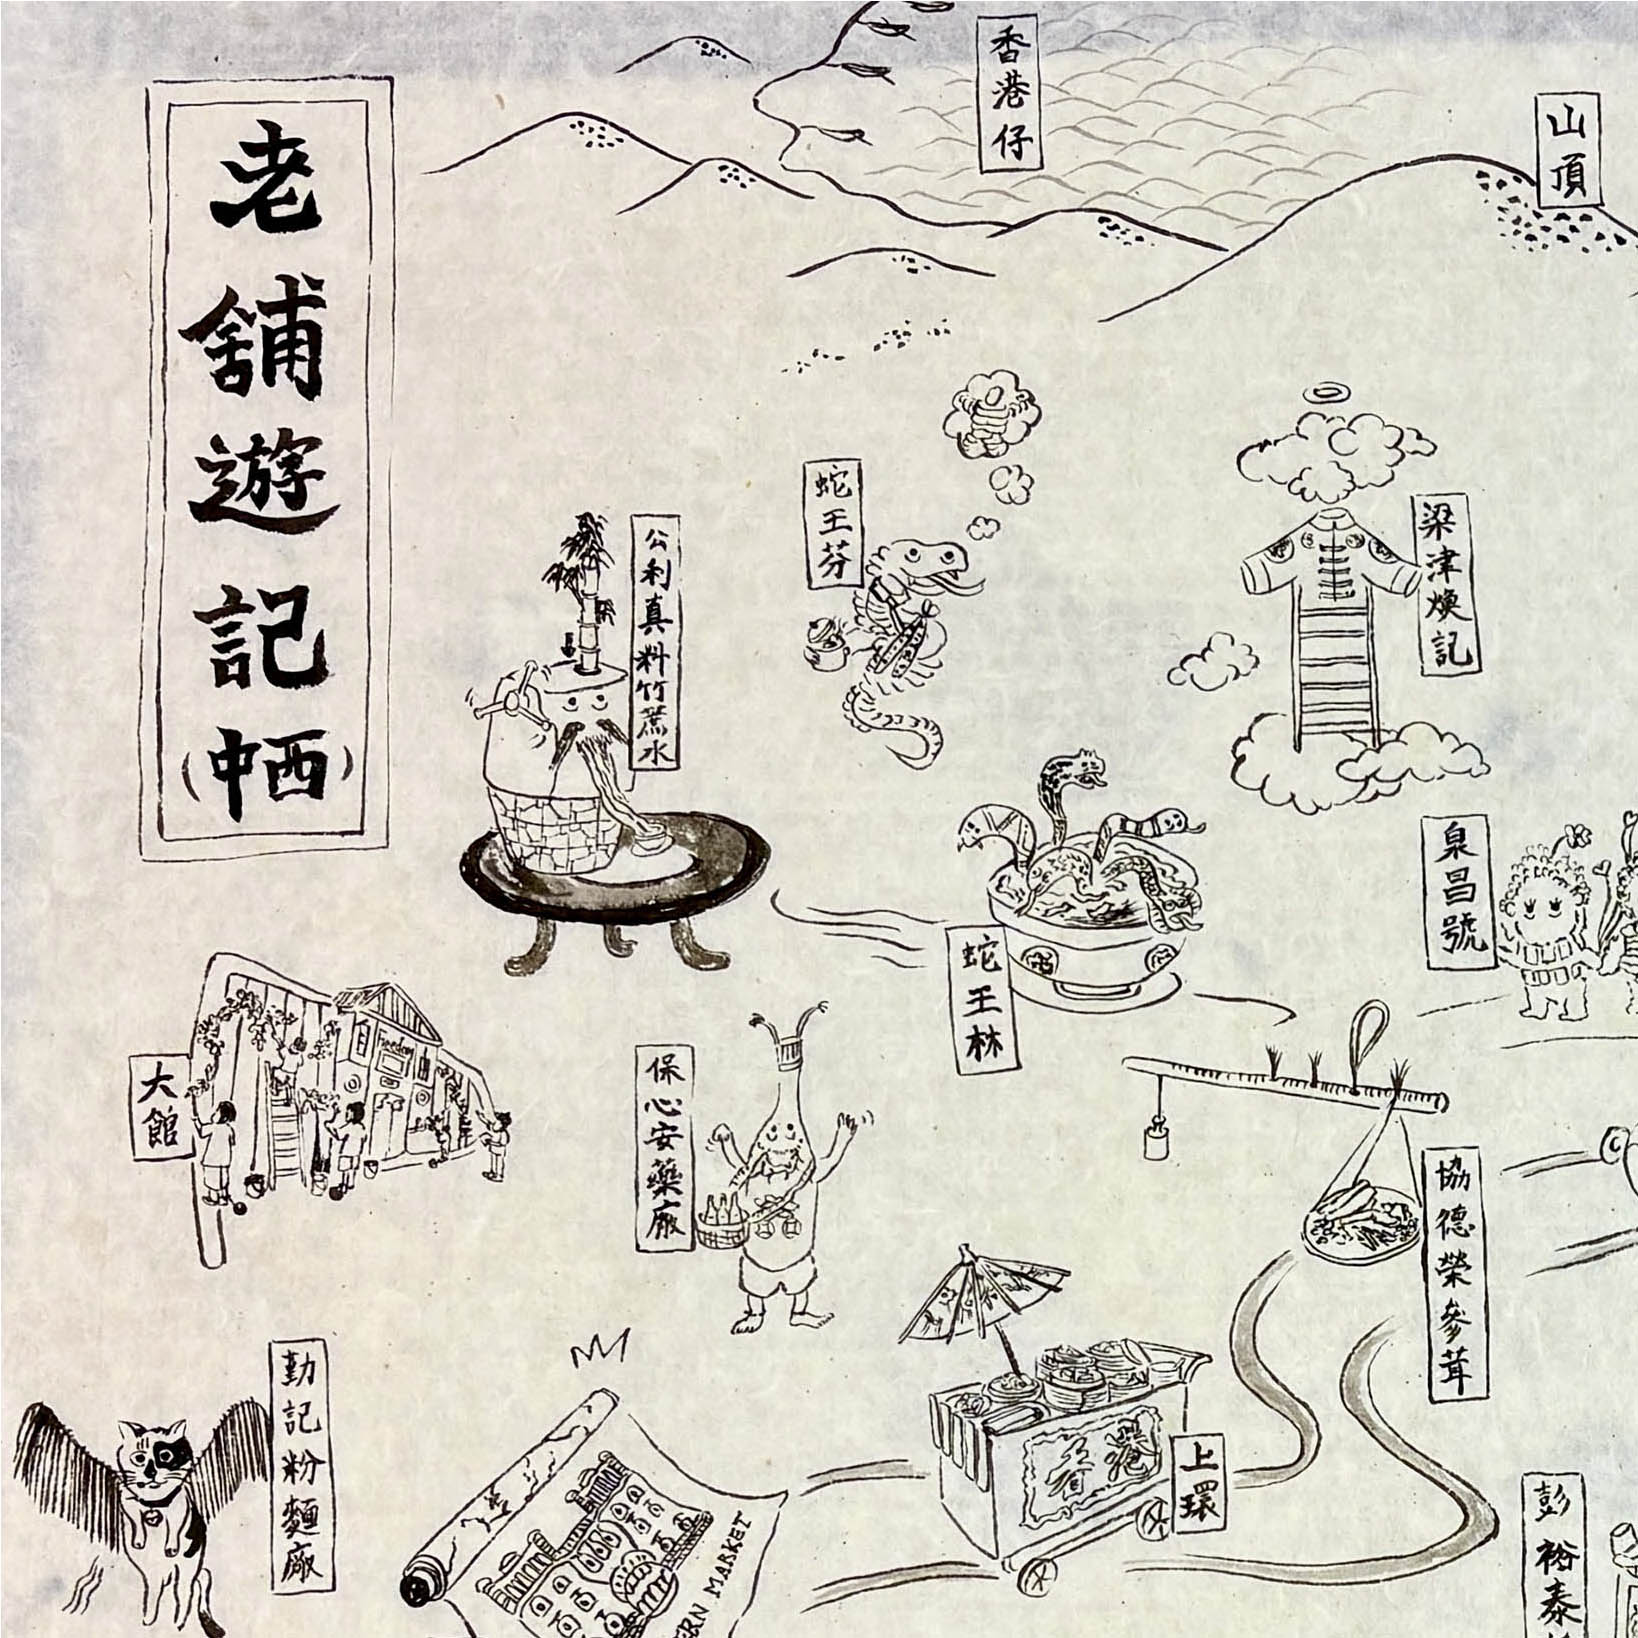 老舖遊記(中西)
香港仔
山頂
蛇王芬
梁津煥記
公利真料竹蔗水
泉昌號
蛇王林
大館
保心安藥廠
協德榮參茸
勤記粉麵廠
香港
上環
ERN MARKET
彭裕泰